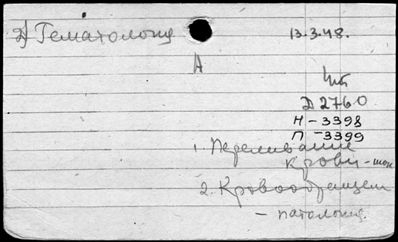 Д) Гематология 13.3.48.
А
Чт
Д 2760
Н-3398
П-3399
1. Переливание
крови - шок
2. Кровообращен
- патология